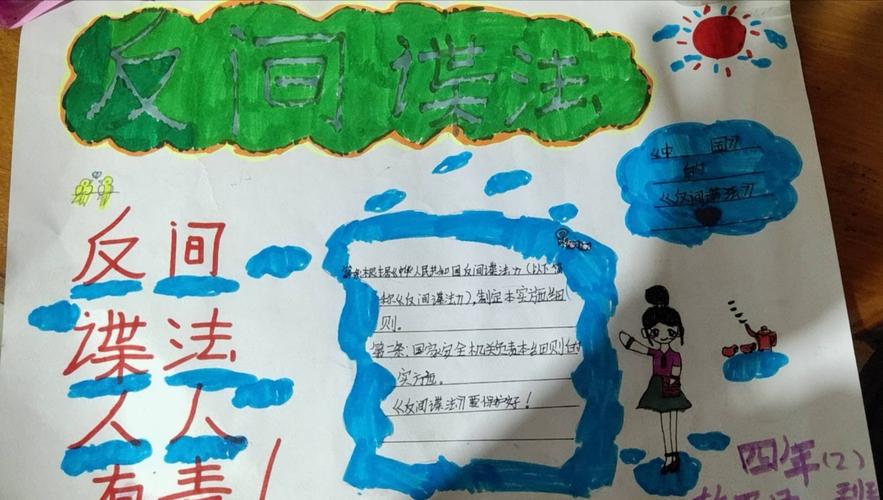 反间谍法
《中 国》
的
《反间谍法》
反间
谍法
人人
有责!
第一条:根据《中华人民共和国反间谍法》(以下简
称《反间谍法》),制定本实施细
则。
第二条:国家安全机关负责本细则的
实施。
《反间谍法》要保护好!
四年(2)